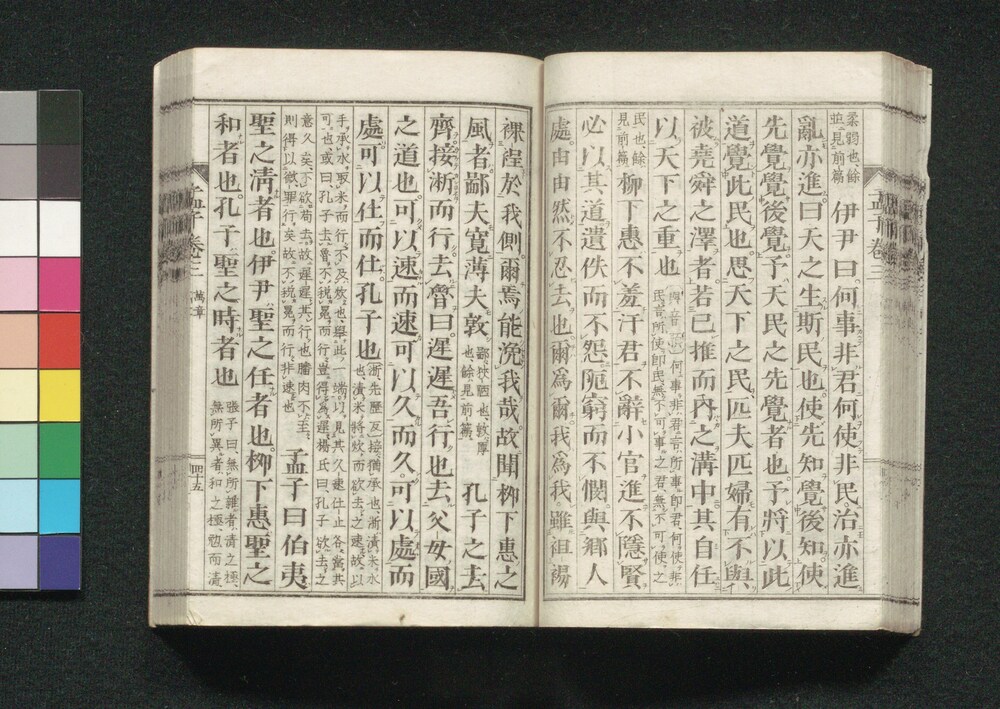 柔弱也餘
並見前篇
伊尹曰何事非君何使非民治亦進
亂亦進曰天之生斯民也使先知覺後知使
先覺覺後覺予天民之先覺者也予將以此
道覺此民也思天下之民匹夫匹婦有不與
被堯舜之澤者若己推而內之溝中其自任
以天下之重也
何事非君言所事卽君何使非
民言所使卽民無不可事之君無不可使之
民也餘
見前篇
柳下惠不羞汙君不辭小官進不隱賢
必以其道遺佚而不怨阨窮而不憫與鄉人
處由由然不忍去也爾爲爾我爲我雖袒裼
孟子卷三
裸裎於我側爾焉能浼我哉故聞柳下惠之
風者鄙夫寬薄夫敦
鄙狹陋也敦厚
也餘見前篇
孔子之去
齊接淅而行去魯曰遲遲吾行也去父母國
之道也可以速而速可以久而久可以處而
處可以仕而仕孔子也
淅先歷反接猶承也淅漬米水
也漬米將炊而欲去之速故以
手承水取米而行不及炊也擧此一端以見其久速仕止各當其
可也或曰孔子去魯不稅冕而行豈得爲遲楊氏曰孔子欲去之
意久矣不欲苟去故遲遲其行也膰肉不至
則得以微罪行矣故不稅冕而行非速也
孟子曰伯夷
聖之淸者也伊尹聖之任者也柳下惠聖之
和者也孔子聖之時者也
張子曰無所雜者淸之極
無所異者和之極勉而淸
孟子卷三
萬章
四十五